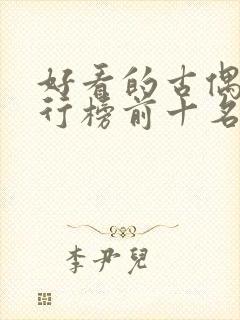 好看的古偶
行榜前十名
李尹儿